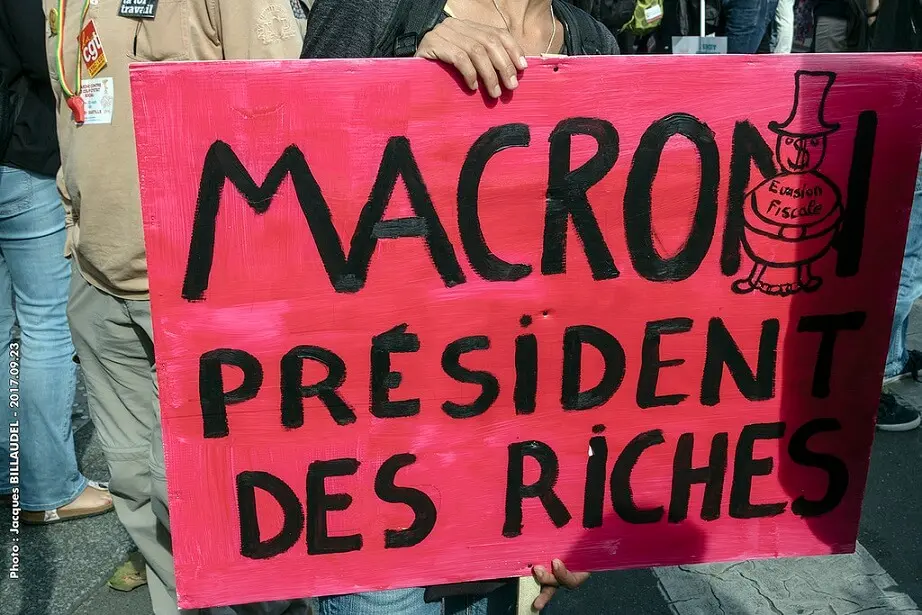 travail
cgt
MACRON
Evasion
Fiscale
PRÉSiDENT
DES RiCHES
Photo : Jacques BILLAUDEL - 2017.09.23